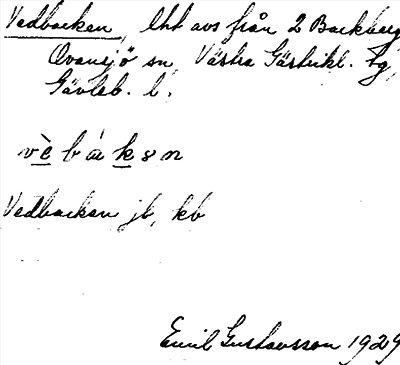 Vedbacken, lht avs från 2 Backberg
Ovansjö sn, Västra Gästrikl. tg,
Gävleb. l.
vè b á k ə n
Vedbacken jb, kb
Emil Gustavsson 1929